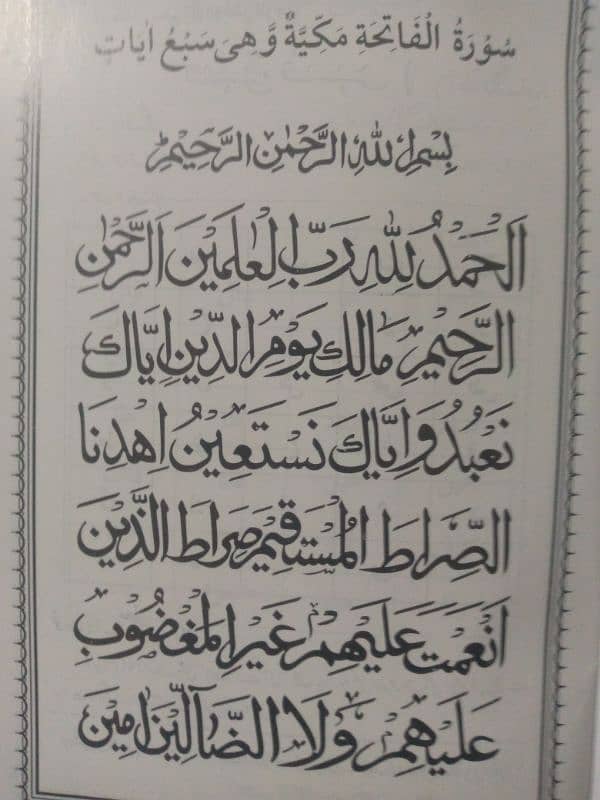 سُوْرَةُ الْفَاتِحَةِ مَكِّيَّةٌ وَّهِيَ سَبْعُ اٰيَاتٍ
بِسْمِ اللّٰهِ الرَّحْمٰنِ الرَّحِيْمِ
اَلْحَمْدُ لِلّٰهِ رَبِّ الْعٰلَمِيْنَ اَلرَّحْمٰنِ
الرَّحِيْمِ مَالِكِ يَوْمِ الدِّيْنِ اِيَّاكَ
نَعْبُدُ وَاِيَّاكَ نَسْتَعِيْنُ اِهْدِنَا
الصِّرَاطَ الْمُسْتَقِيْمَ صِرَاطَ الَّذِيْنَ
اَنْعَمْتَ عَلَيْهِمْ غَيْرِ الْمَغْضُوْبِ
عَلَيْهِمْ وَلَا الضَّآلِّيْنَ اٰمِيْنَ